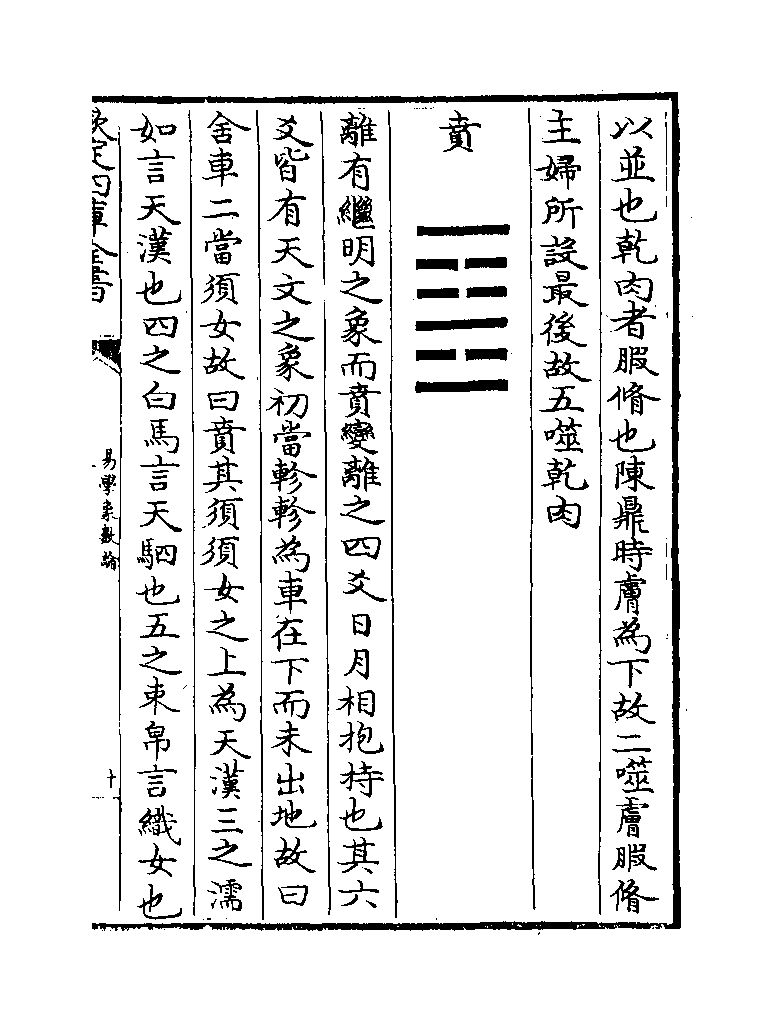 以並也乾肉者腶脩也陳鼎時膚為下故二噬膚腶脩
主婦所設最後故五噬乾肉
賁
離有繼明之象而賁變離之四爻日月相抱持也其六
爻皆有天文之象初當軫軫為車在下而未出地故曰
舍車二當須女故曰賁其須須女之上為天漢三之濡
如言天漢也四之白馬言天駟也五之束帛言織女也
欽定四庫全書
易學象數論
十